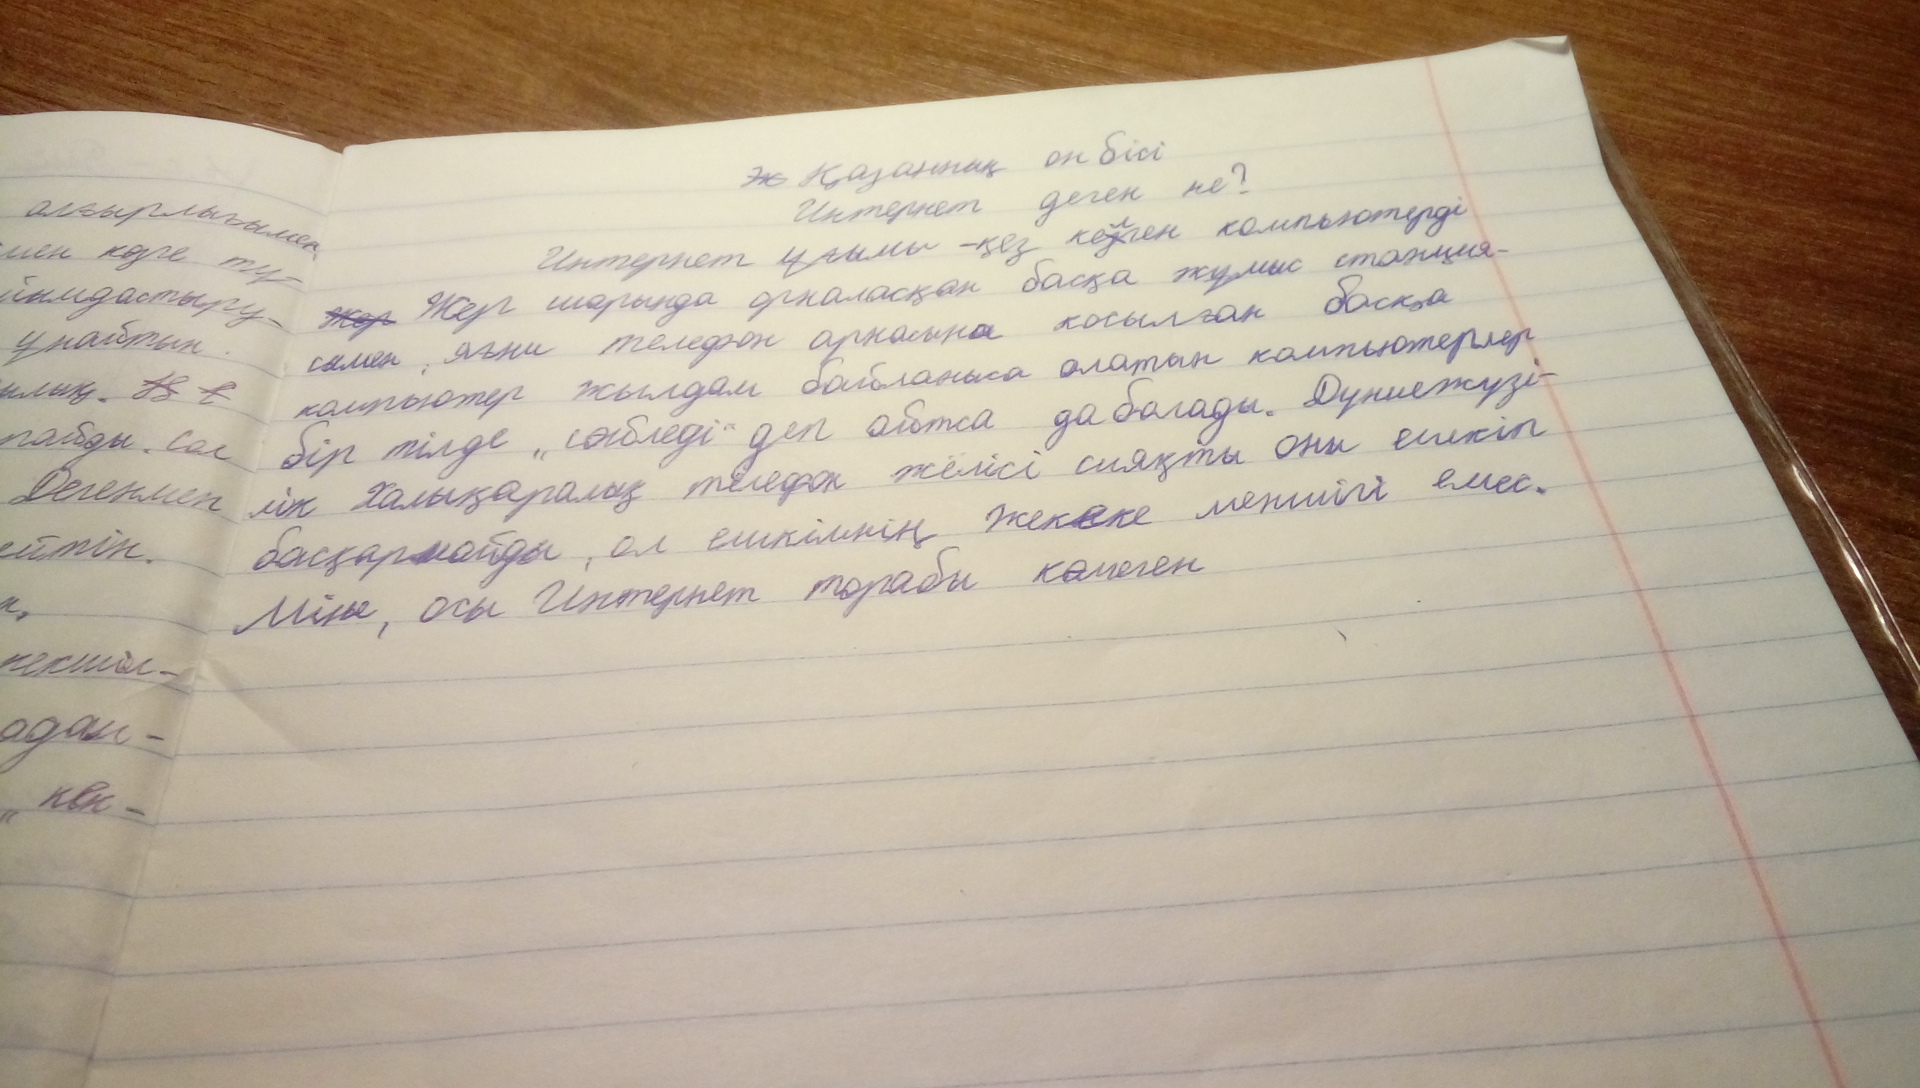 алғырлығымен
мен көзге тү-
йымдастыру-
ұнайтын.
пайды. Сол
Дегенмен
ейтін.
адам-
„көк-
Қазанның он бісі
Интернет деген не?
Интернет ұғымы -кез кейген компьютерді
Жер шарында орналасқан басқа жұмыс станция-
сымен, яғни телефон арнасына косылған басқа
компьютер жылдам байланыса алатын компьютерлер
бір тілде „сөйледі" деп айтса да болады. Дүниежүзі-
лік Халықаралық телефон желісі сияқты оны ешкім
басқармайды, ол ешкімнің жекеке меншігі емес.
Міне, осы Интернет торабы көмеген